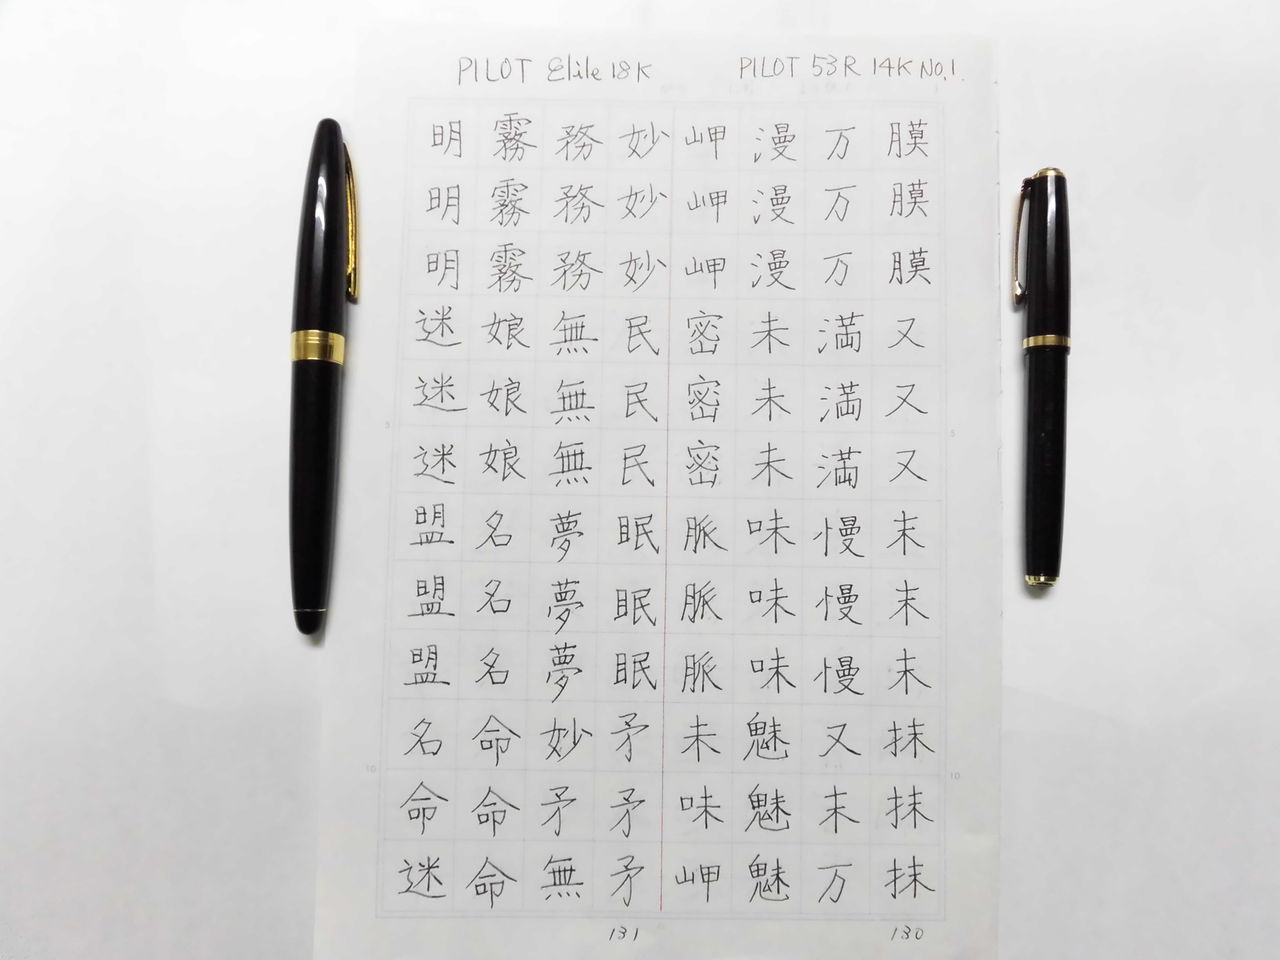 PILOT Elite 18K
PILOT 53R 14K No.1.
膜膜膜又又又末末末抹抹抹
万万万満満満慢慢慢又末万
漫漫漫未未未味味味魅魅魅
岬岬岬密密密脈脈脈未味岬
妙妙妙民民民眠眠眠矛矛矛
務務務無無無夢夢夢妙矛無
霧霧霧娘娘娘名名名命命命
明明明迷迷迷盟盟盟名命迷
5
10
5
10
131
130